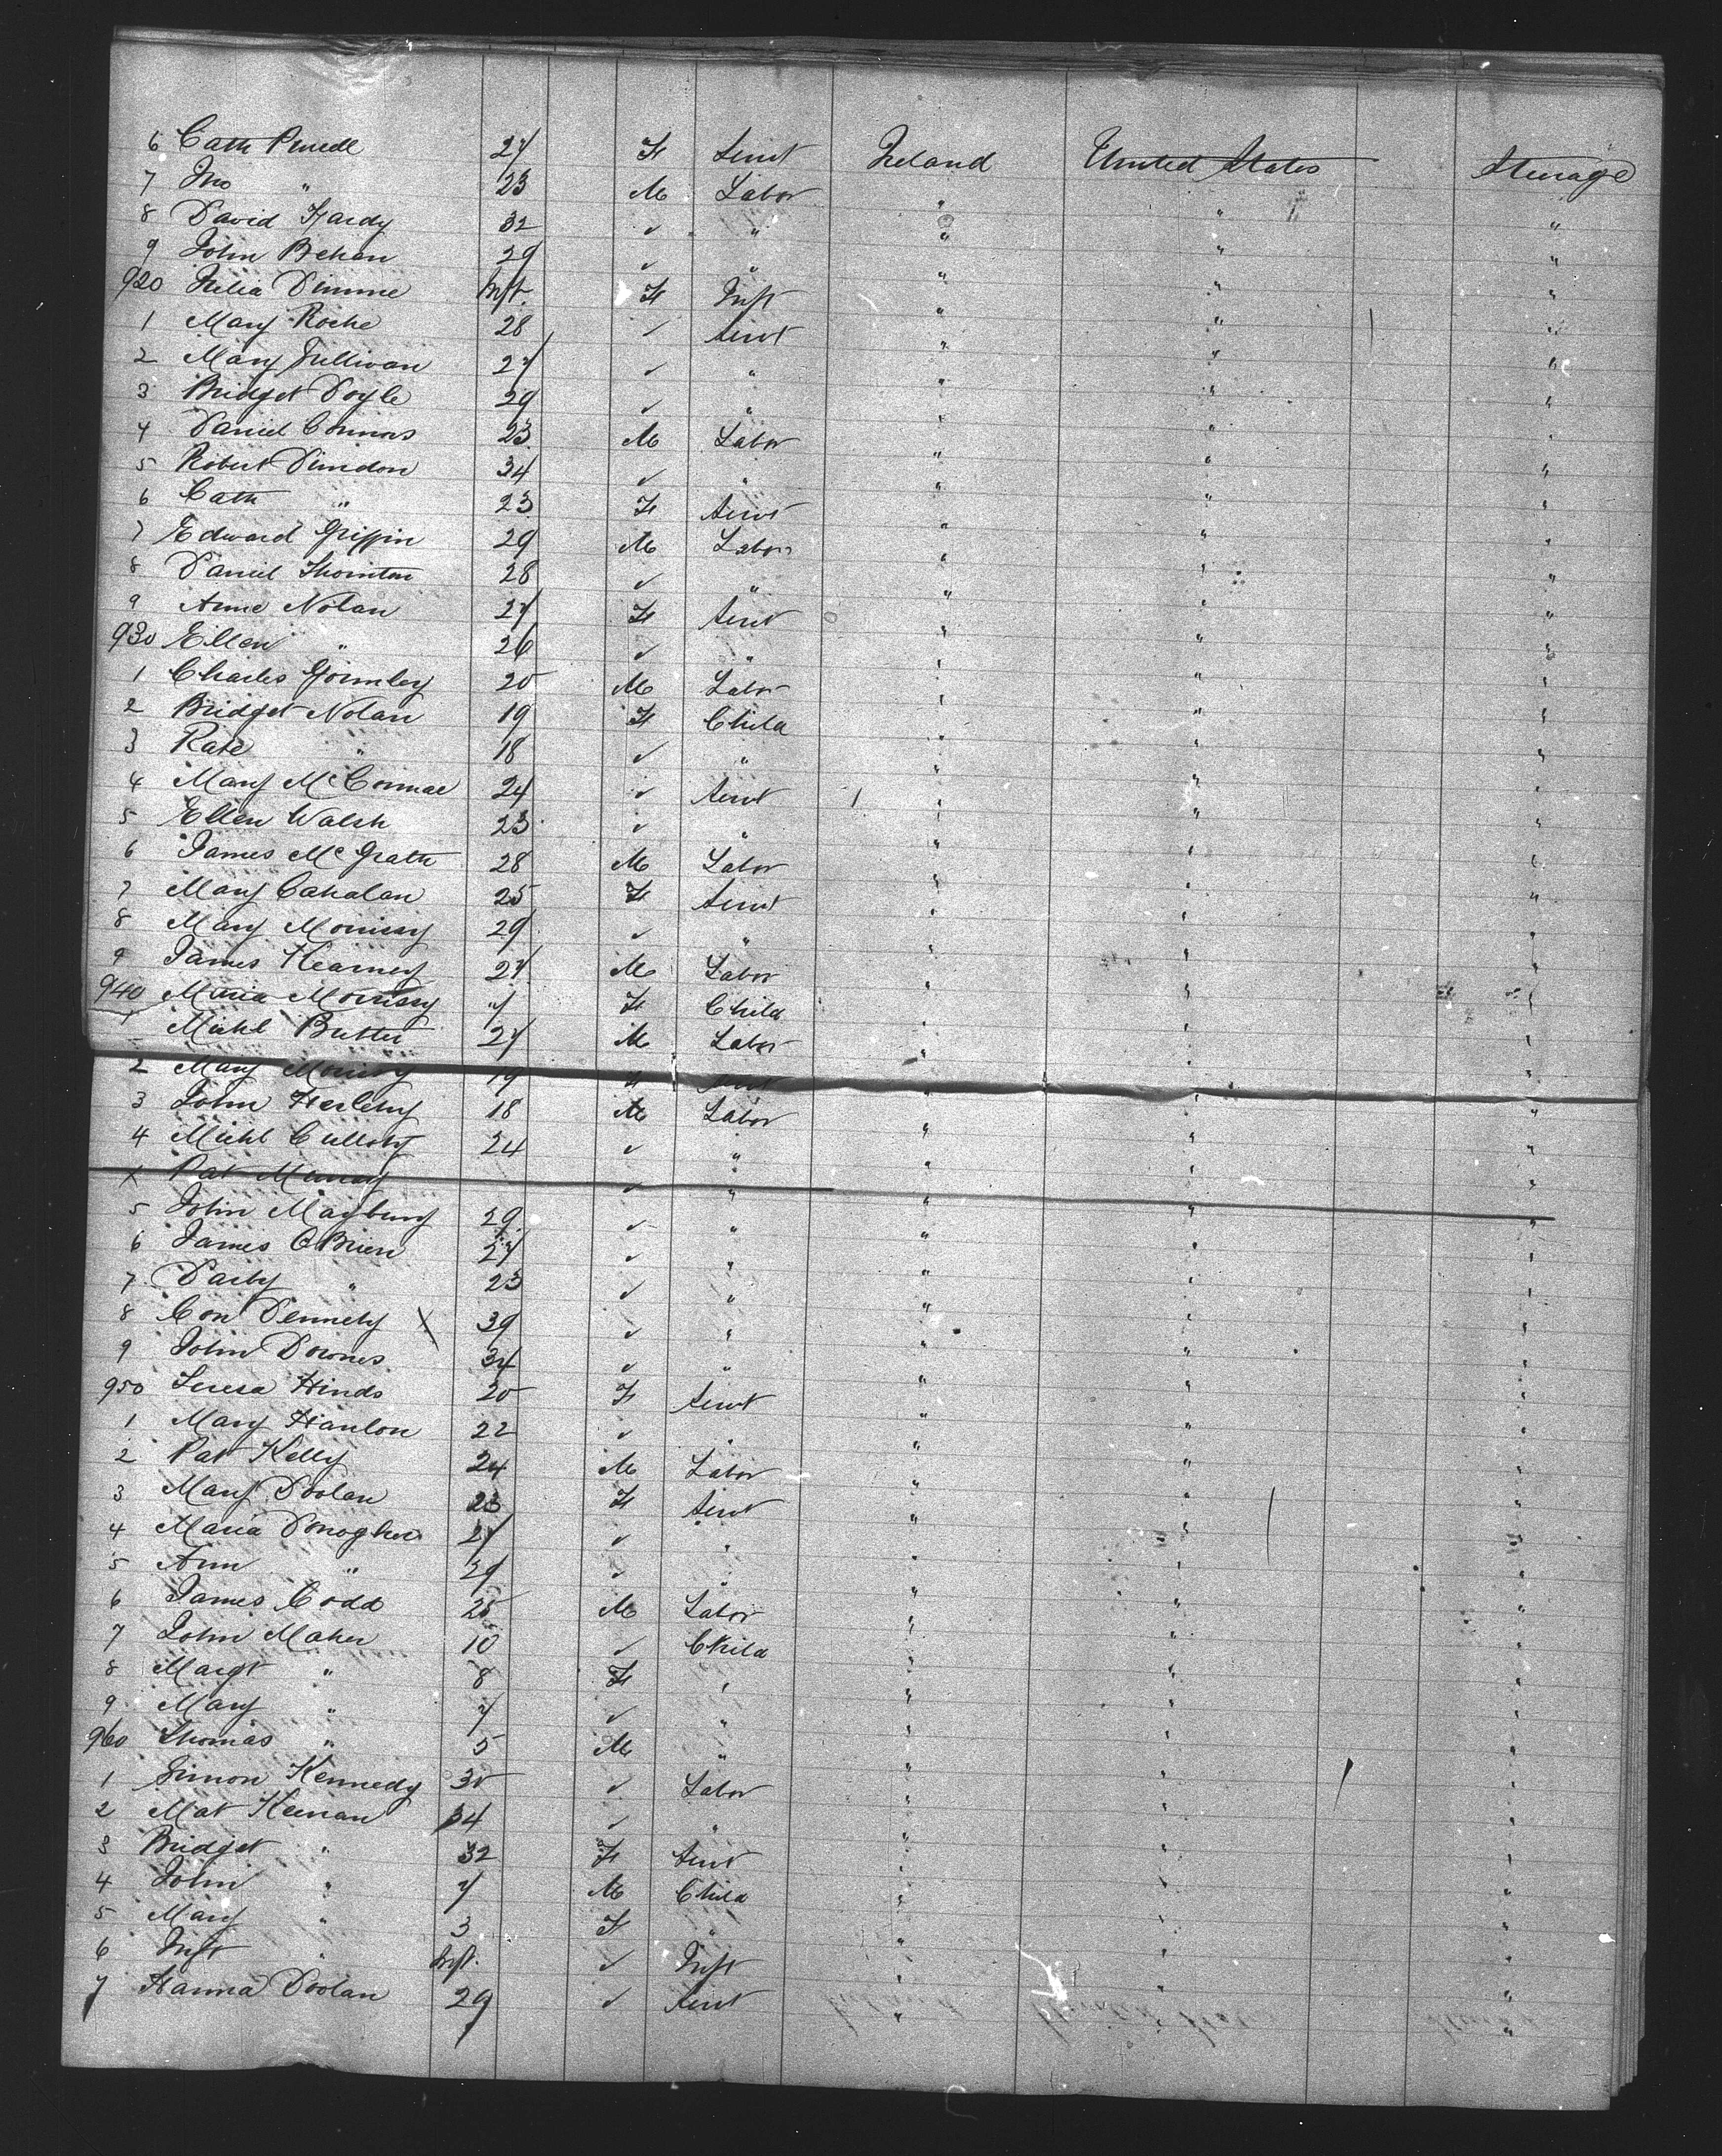 6 Cath Purcell 27 F Servt Ireland United States Steerage
7 Jno " 23 M Labor " " "
8 David Hardy 32 ✓ " " " "
9 John Behan 29 ✓ " " " "
920 Julia Inft. F Inft " " "
1 Mary Roche 28 ✓ Servt " " "
2 Mary Sullivan 27 ✓ " " " "
3 Bridget Doyle 29 ✓ " " " "
4 Daniel Connors 23 M Labor " " "
5 Robert 34 ✓ " " " "
6 Cath " 23 F Servt " " "
7 Edward Griffin 29 M Labor " " "
8 Daniel Thornton 28 ✓ " " " "
9 Anne Nolan 27 F Servt " " "
930 Ellen " 26 ✓ " " " "
1 Charles Gormley 20 M Labor " " "
2 Bridget Nolan 19 F Child " " "
3 Kate " 18 ✓ " " " "
4 Mary McCormac 24 ✓ Servt " " "
5 Ellen Walsh 23 ✓ " " " "
6 James McGrath 28 M Labor " " "
7 Mary Cahalan 25 F Servt " " "
8 Mary Morrissy 29 ✓ " " " "
9 James Kearney 27 M Labor " " "
940 Maria Morrissy 7 F Child " " "
1 Michl Butler 27 M Labor " " "
2 Mary 19 F Servt " " "
3 John 18 M Labor " " "
4 Michl 24 ✓ " " " "
x Pat ✓ " " " "
5 John Maybury 29 ✓ " " " "
6 James OBrien 27 ✓ " " " "
7 Darby " 23 ✓ " " " "
8 Con Dennehy X 39 ✓ " " " "
9 John Downes 34 ✓ " " " "
950 Teresa Hinds 20 F Servt " " "
1 Mary Hanlon 22 ✓ " " " "
2 Pat Kelly 24 M Labor " " "
3 Mary Doolan 23 F Servt " " "
4 Maria Donoghue 27 ✓ " " " "
5 Ann " 29 ✓ " " " "
6 James Codd 25 M Labor " " "
7 John Maher 10 ✓ Child " " "
8 Margt " 8 F " " " "
9 Mary " 7 ✓ " " " "
960 Thomas " 5 M " " " "
1 Simon Kennedy 30 ✓ Labor " " "
2 Mat Keenan 34 ✓ " " " "
3 Bridget " 32 F Servt " " "
4 John " 7 M Child " " "
5 Mary " 3 F " " " "
6 Inft " Inft. ✓ Inft " " "
7 Hanna Doolan 29 ✓ Servt " " "